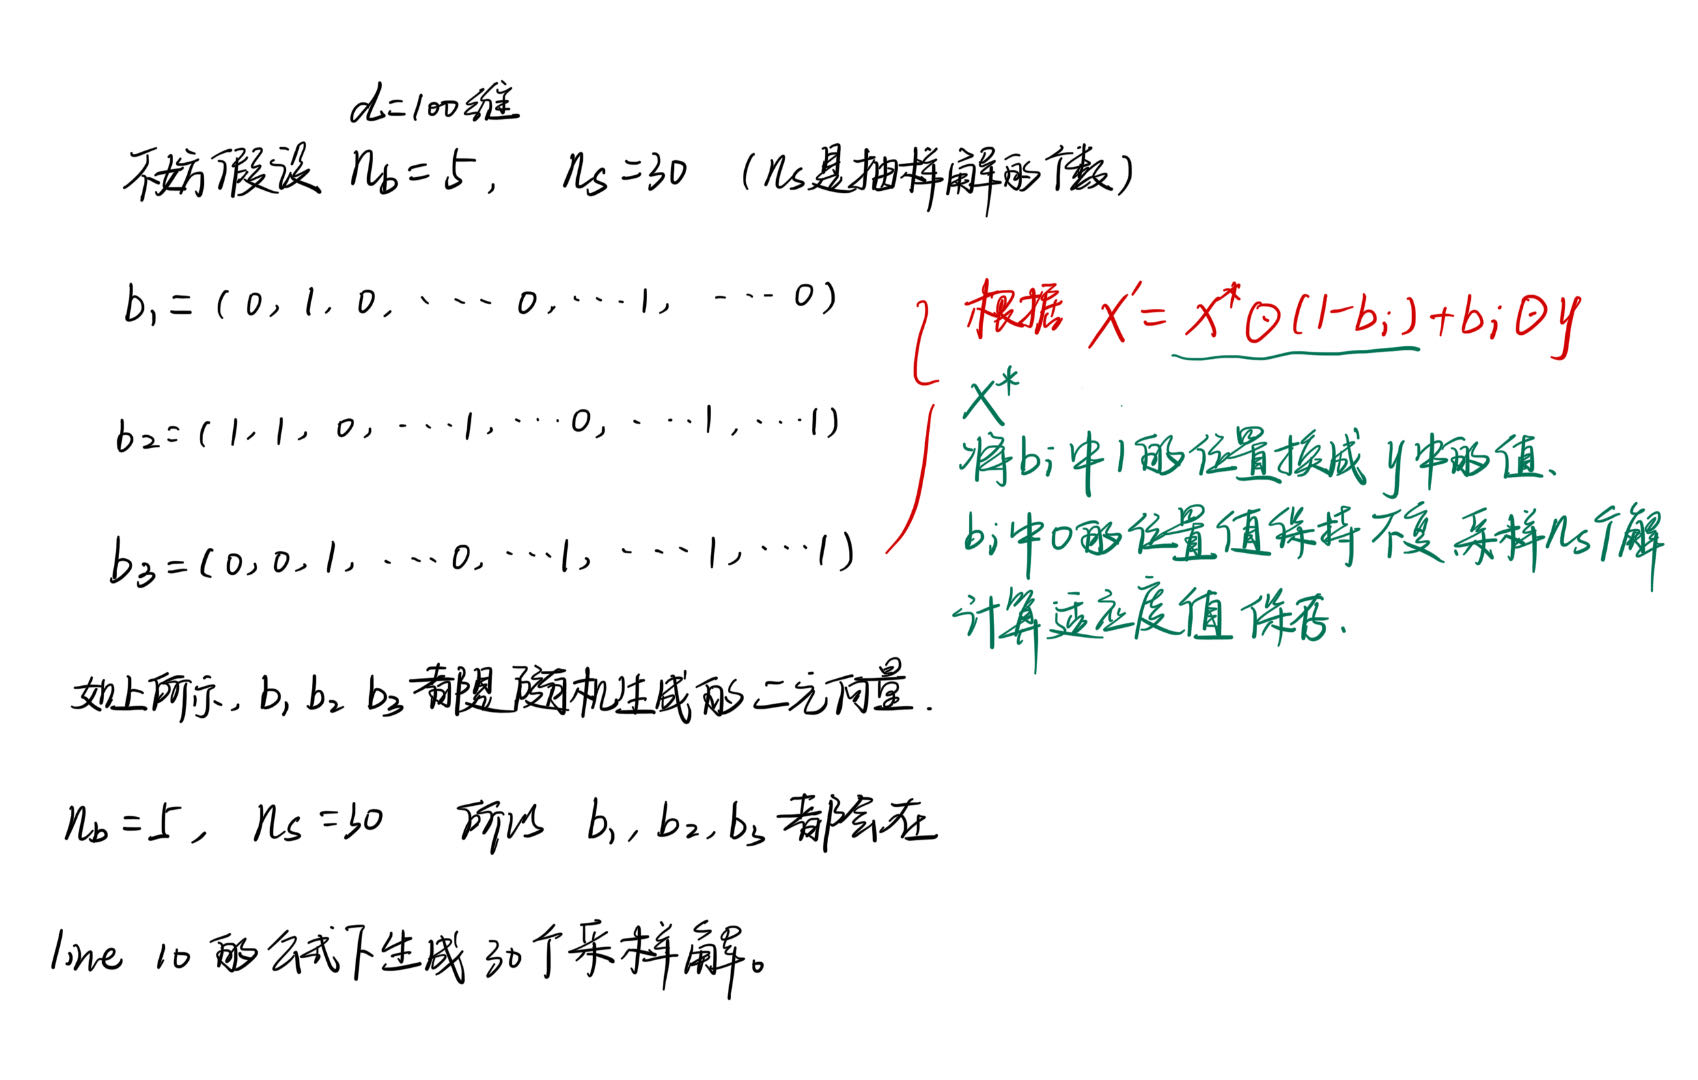 d=100维
不妨假设 n_b=5, n_s=30 (n_s是抽样解的个数)
b_1=(0,1,0,····0,···1,····0)
根据 X′=X*⊙(1-b_i)+b_i⊙y
X*
b_2=(1,1,0,····1,···0,···1,···1)
将b_i中1的位置换成y中的值、
b_3=(0,0,1,····0,···1,····1,···1)
b_i中0的位置值保持不变.采样n_s个解
计算适应度值保存.
如上所示,b_1 b_2 b_3都是随机生成的二元向量.
n_b=5, n_s=30 所以 b_1,b_2,b_3都会在
line 10的公式下生成30个采样解。